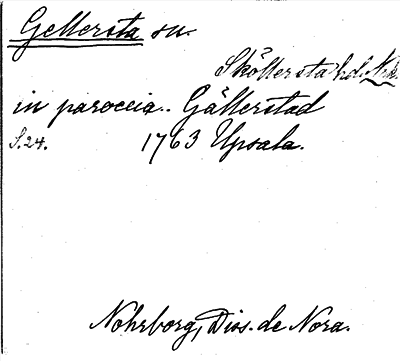 Gellersta sn.
Sköllersta hd. Nrk.
in paroccia.. Gällerstad
S.24. 1763 Upsala.
Nohrborg, Diss. de Nora.